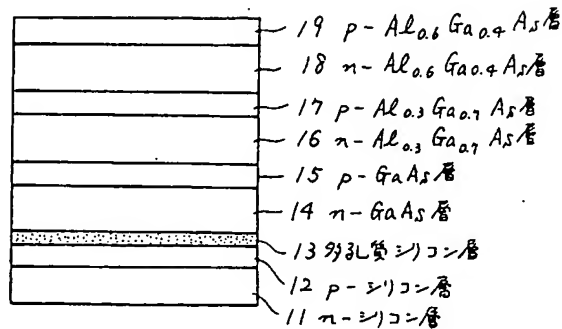 19 p-Al0.6Ga0.4As層
18 n-Al0.6Ga0.4As層
17 p-Al0.3Ga0.7As層
16 n-Al0.3Ga0.7As層
15 p-GaAs層
14 n-GaAs層
13 多孔質シリコン層
12 p-シリコン層
11 n-シリコン層